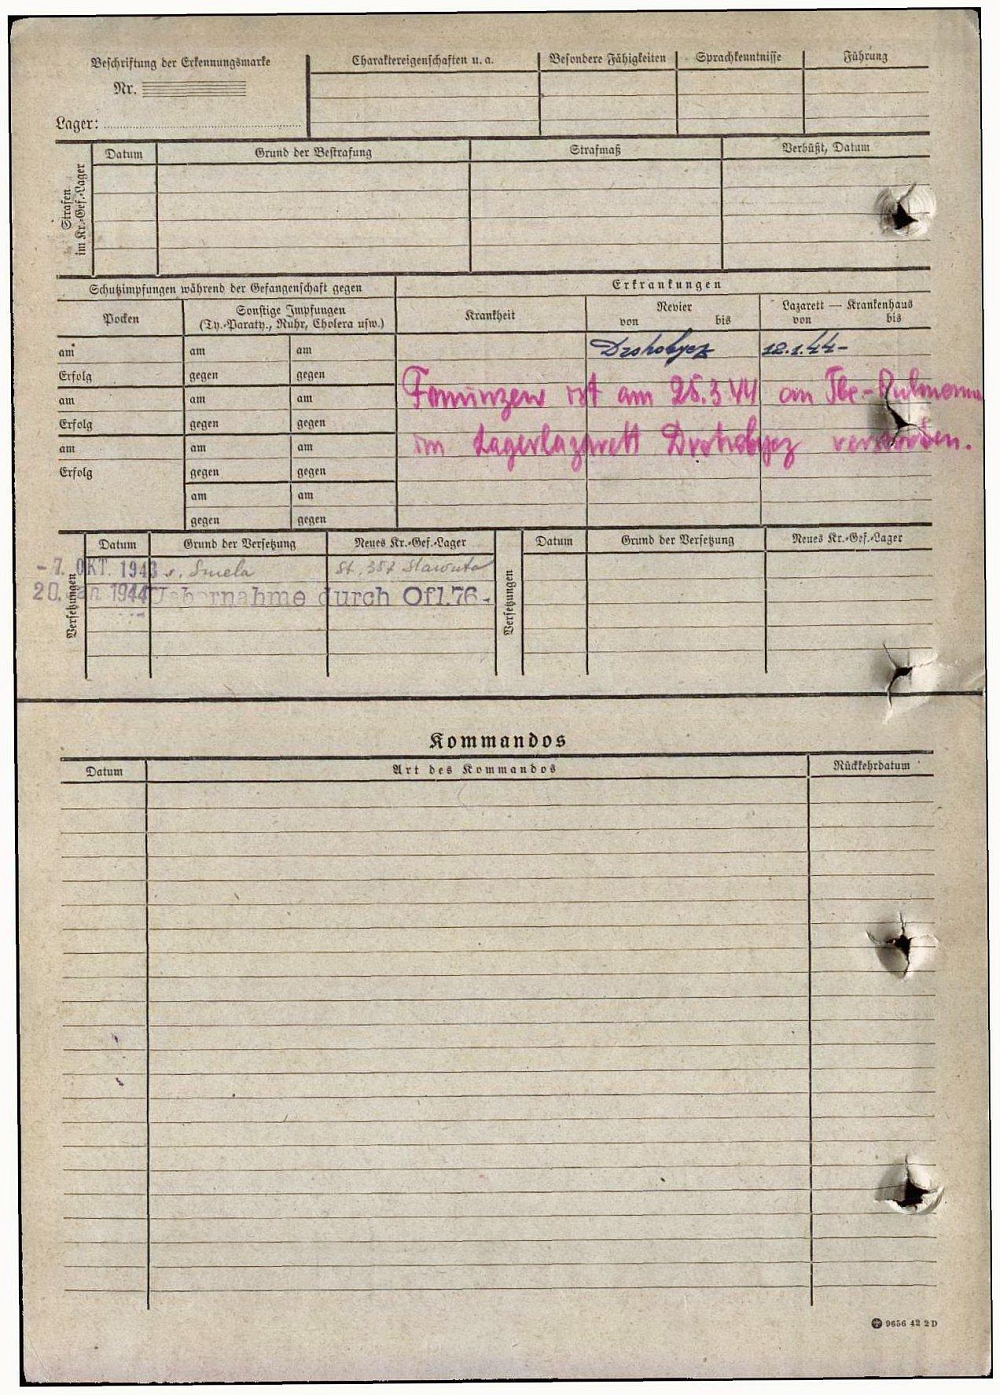 Beschriftung der Erkennungsmarke
Nr.
Lager:
Charaktereigenschaften u. a.
Besondere Fähigkeiten
Sprachkenntnisse
Führung
Strafen im Kr.-Gef.-Lager
Datum
Grund der Bestrafung
Strafmaß
Verbüßt, Datum
Schutzimpfungen während der Gefangenschaft gegen
Erkrankungen
Pocken
Sonstige Impfungen
(Ty.-Paraty., Ruhr, Cholera usw.)
Krankheit
Revier
von bis
Lazarett — Krankenhaus
von bis
am am am Drohobycz 12.1.44-
Erfolg gegen gegen
am am am
Erfolg gegen gegen
am am am
Erfolg gegen gegen
am am
gegen gegen
ist am 25.3.44 an Tbc-Pulmonum
im Lagerlazarett Drohobycz verstorben.
Versetzungen
Datum Grund der Versetzung Neues Kr.-Gef.-Lager
- 7. OKT. 1943 s. Smela St. 357 Slawuta
20. Jan 1944 Uebernahme durch Ofl.76.
Versetzungen
Datum Grund der Versetzung Neues Kr.-Gef.-Lager
Kommandos
Datum Art des Kommandos Rückkehrdatum
9656 42 2 D